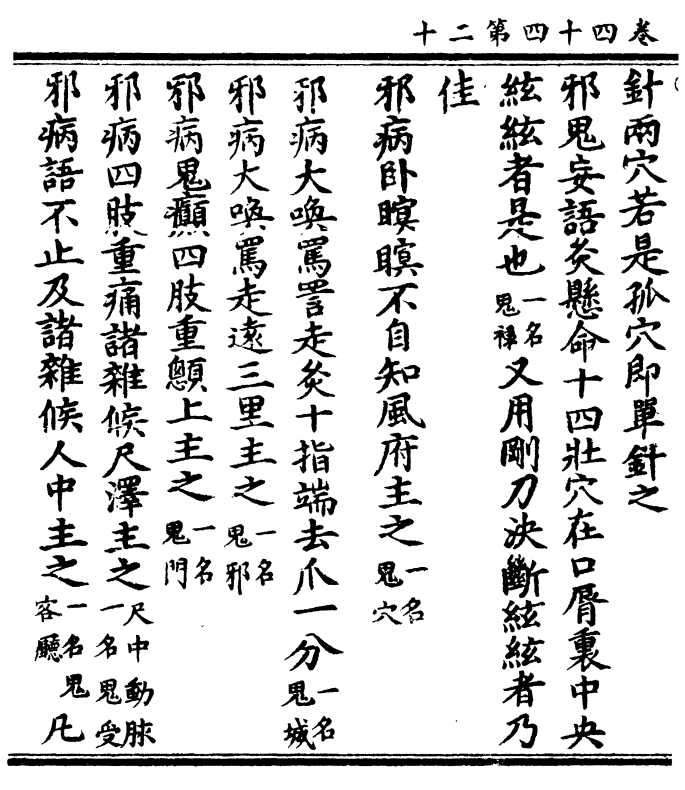 卷四十四第二十
針兩穴若是孤穴即單針之
邪鬼妄語灸懸命十四壯穴在口脣裏中央
絃絃者是也一名鬼祿又用剛刀決斷絃絃者乃
佳
邪病卧瞑瞑不自知風府主之一名鬼穴
邪病大喚罵詈走灸十指端去爪一分一名鬼城
邪病大喚罵走遠三里主之一名鬼邪
邪病鬼癲四肢重顖上主之一名鬼門
邪病四肢重痛諸雜候尺澤主之尺中動脉一名鬼受
邪病語不止及諸雜候人中主之一名鬼客廳凡